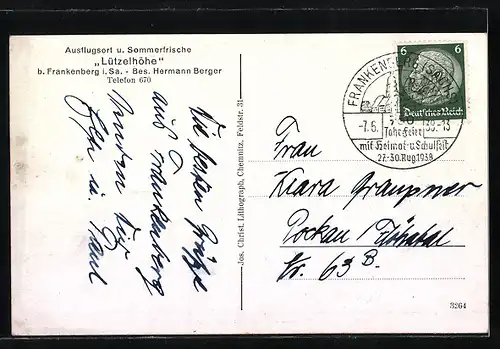 Ausflugsort u. Sommerfrische
„Lützelhöhe"
b. Frankenberg i. Sa. - Bes. Hermann Berger
Telefon 670
Die besten Grüße
aus Frankenberg
Jos. Christ. Lithograph, Chemnitz, Feldstr. 31
6 6
Deutsches Reich
FRANKENBERG (SACHS)
-7.6.
Jahr-Feier
mit Heimat- u. Schulfest
27.-30. Aug. 1938
Frau
Klara Graupner
Pockau
Nr. 63 B.
3264